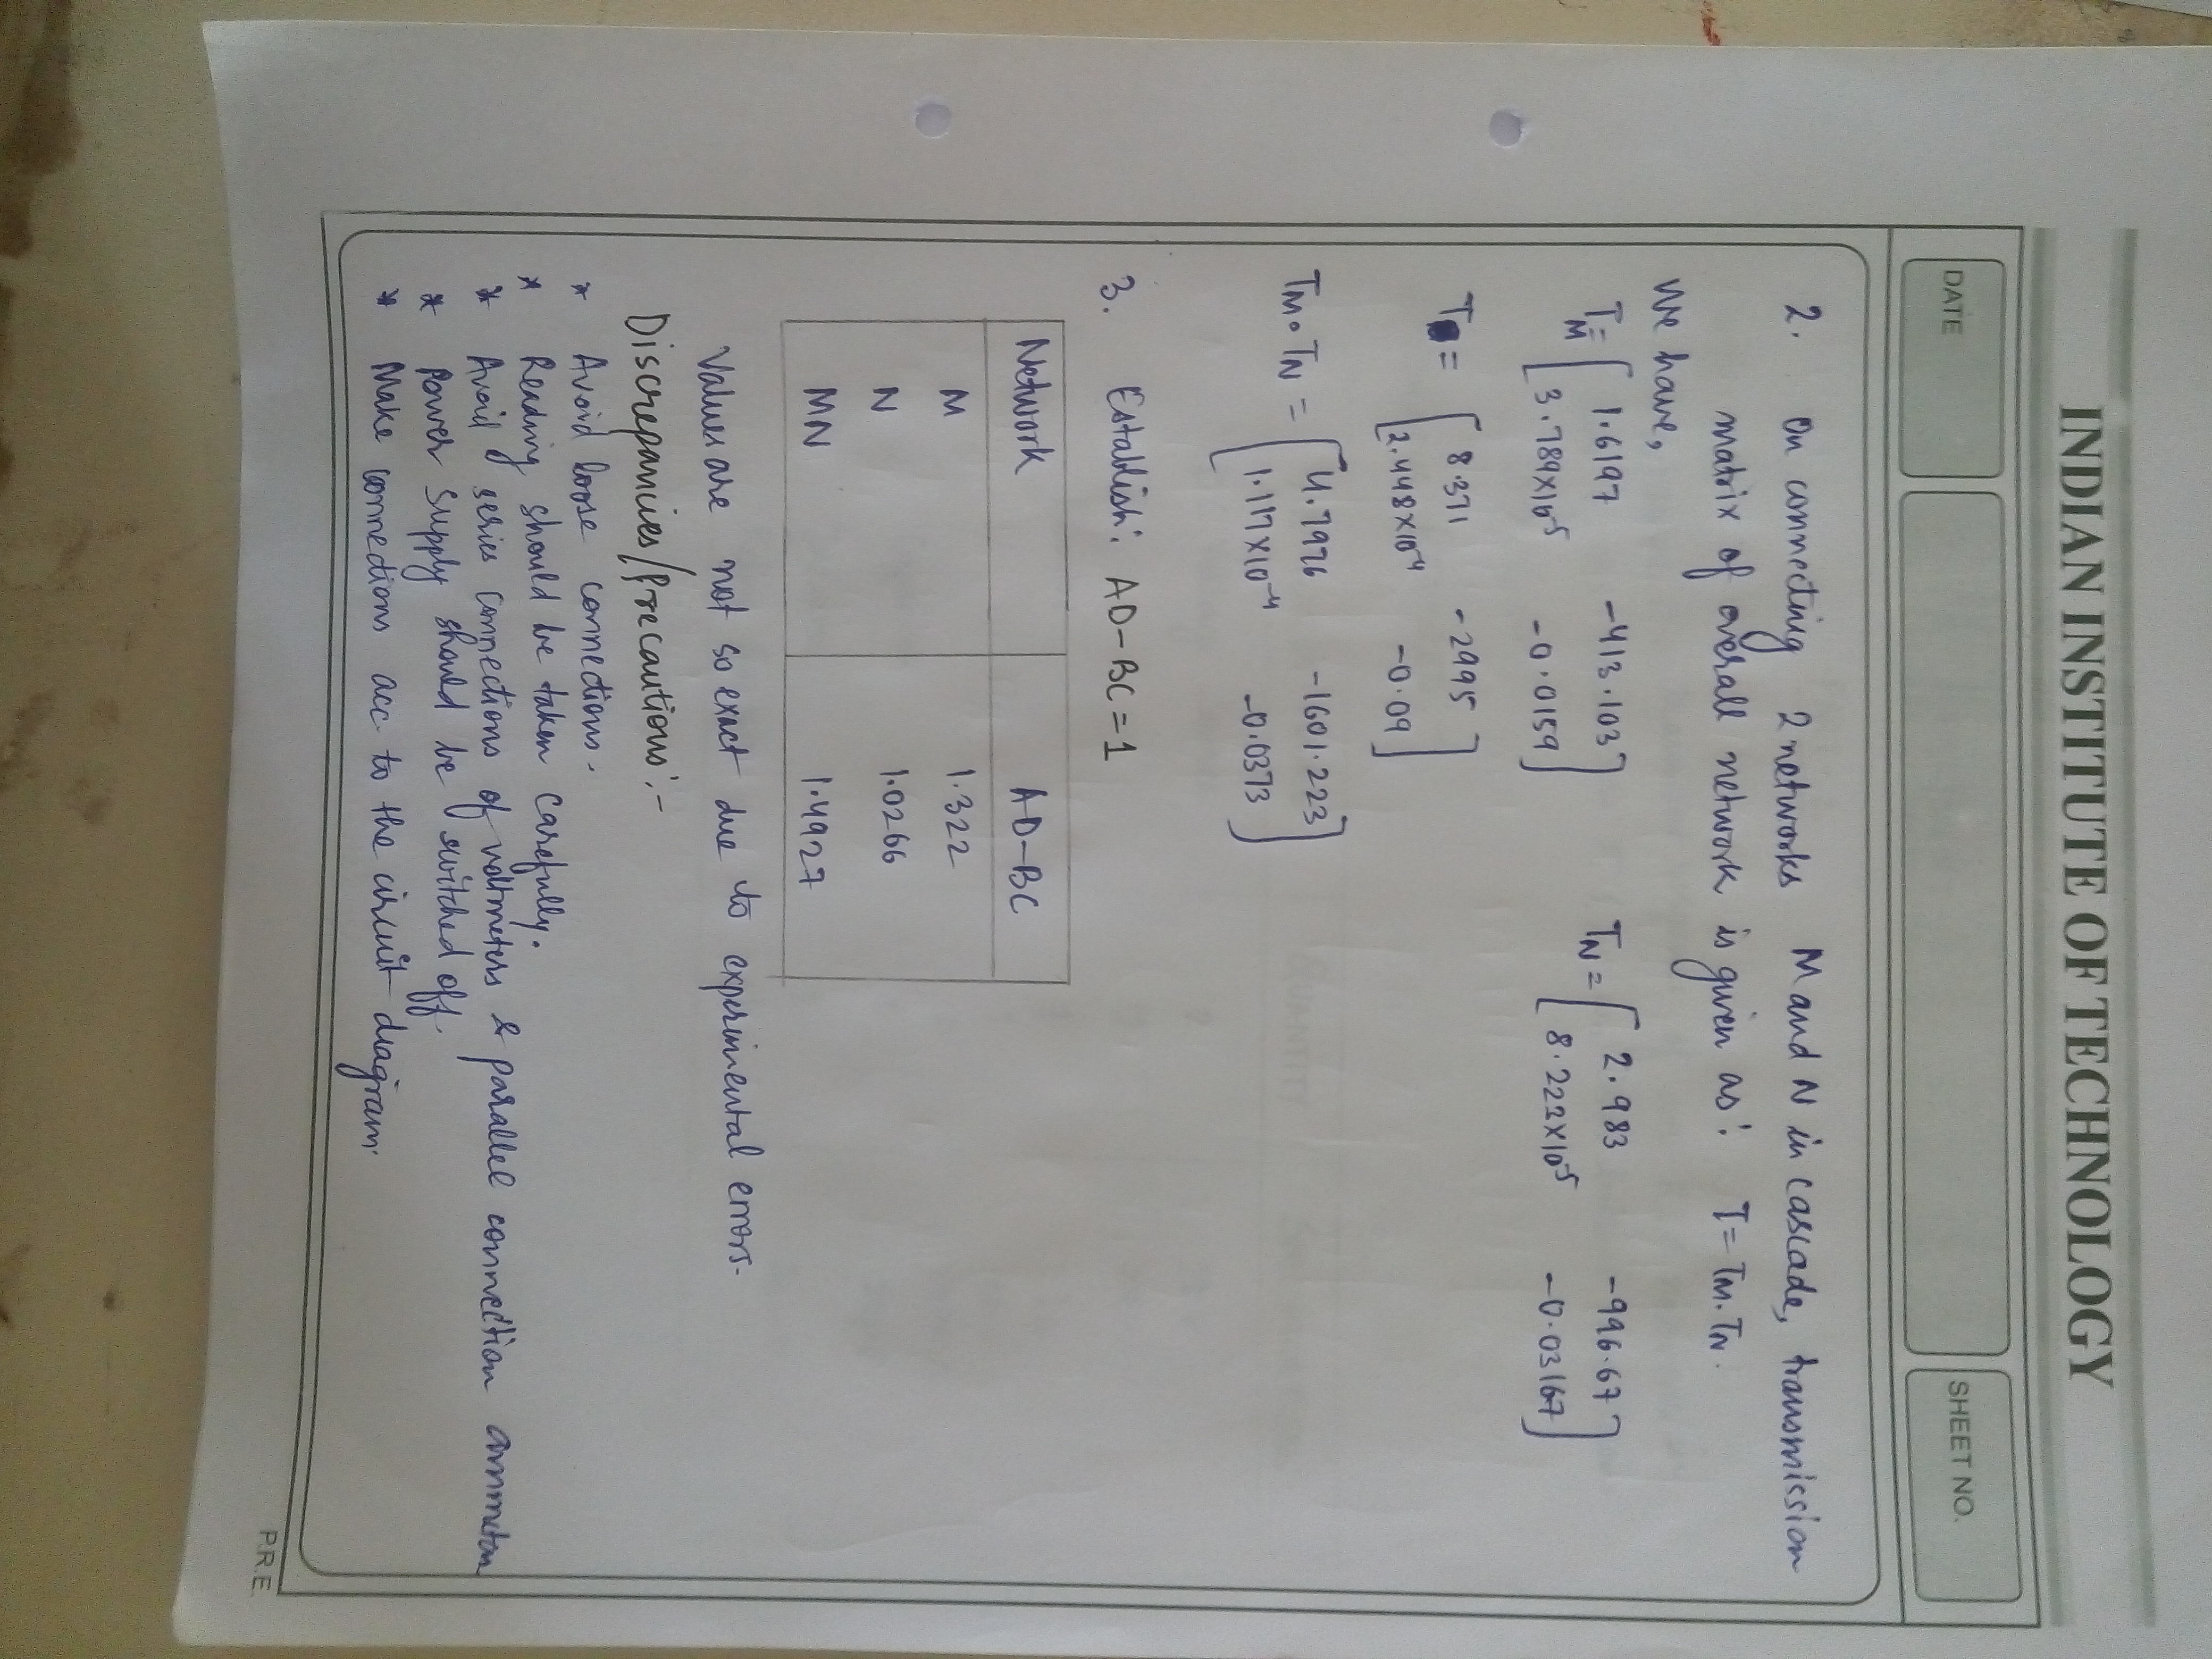 INDIAN INSTITUTE OF TECHNOLOGY
DATE
SHEET NO.
2. On connecting 2 networks M and N in cascade, transmission
matrix of overall network is given as: T = TM. TN.
We have,
TM = [ 1.6197 -413.103 ] TN = [ 2.983 -996.67 ]
[ 3.789×10-5 -0.0159 ] [ 8.223×10-5 -0.03167 ]
T = [ 8.371 -2995 ]
[ 2.448×10-4 -0.09 ]
TM . TN = [ 4.7976 -1601.223 ]
[ 1.117×10-4 -0.0373 ]
3. Establish: AD-BC=1
Network AD-BC
M 1.322
N 1.0266
MN 1.4927
Values are not so exact due to experimental errors.
Discrepancies/Precautions:-
* Avoid loose connections.
* Reading should be taken carefully.
* Avoid series connections of voltmeters & parallel connection
* Power supply should be switched off.
* Make connections acc. to the circuit diagram.
P.R.E.